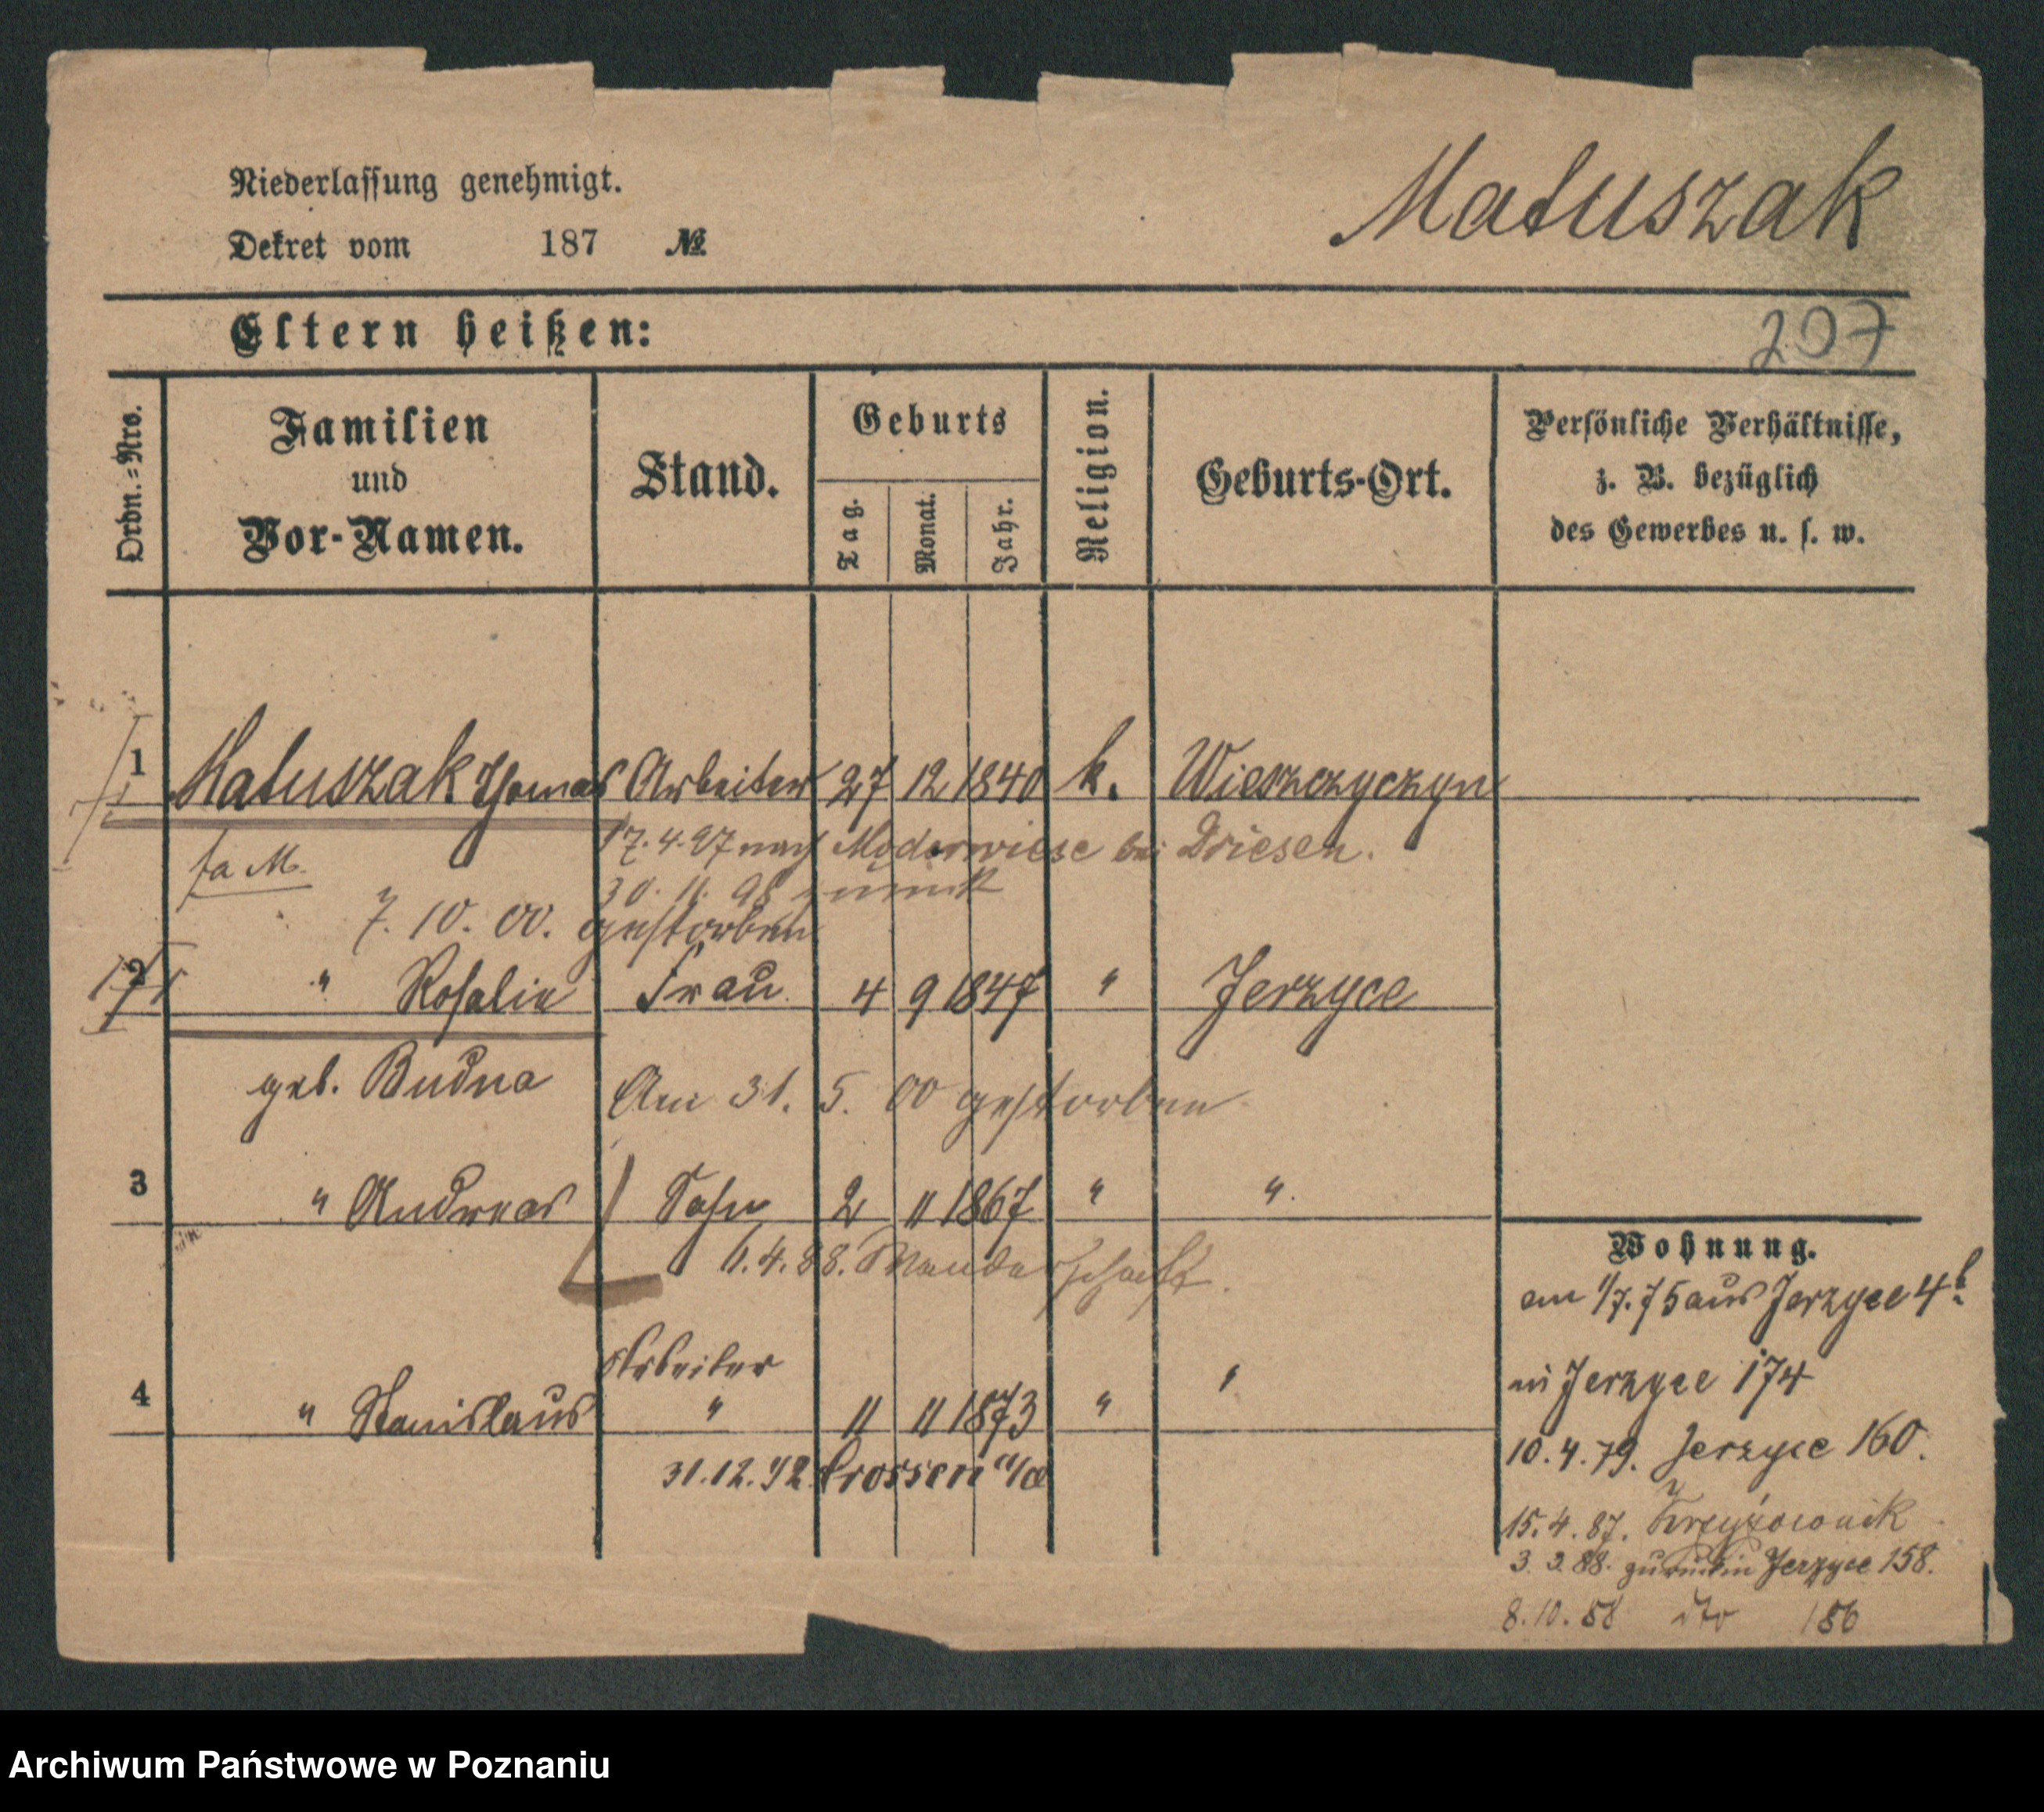 Niederlassung genehmigt.
Matuszak
Dekret vom 187 №
Eltern heißen:
207
Ordn.-Nro.
Familien
und
Vor-Namen.
Stand.
Geburts
Tag.
Monat.
Jahr.
Religion.
Geburts-Ort.
Persönliche Verhältnisse,
z. B. bezüglich
des Gewerbes u. s. w.
1 Matuszak Thomas Arbeiter 27 12 1840 k. Wieszczyczyn
17. 4. 97 nach Moderwiese bei Driesen.
fa M.
30. 11. 98 zurück
7. 10. 00. gestorben
2 " Rosalie Frau 4 9 1847 " Jerzyce
geb. Budna
Am 31. 5. 00 gestorben
3 " Andreas Sohn 2 11 1867 " ".
6. 4. 88. Wanderschaft.
Arbeiter
4 " Stanislaus " 11 11 1873 " "
31. 12. 92 Crossen a/O
Wohnung.
am 1/7. 75 aus Jerzyce 4b.
in Jerzyce 174
10. 4. 79. Jerzyce 160.
15. 4. 87. Krzyżownik
3. 3. 88. zurück in Jerzyce 158.
8. 10. 88 dto 156
Archiwum Państwowe w Poznaniu